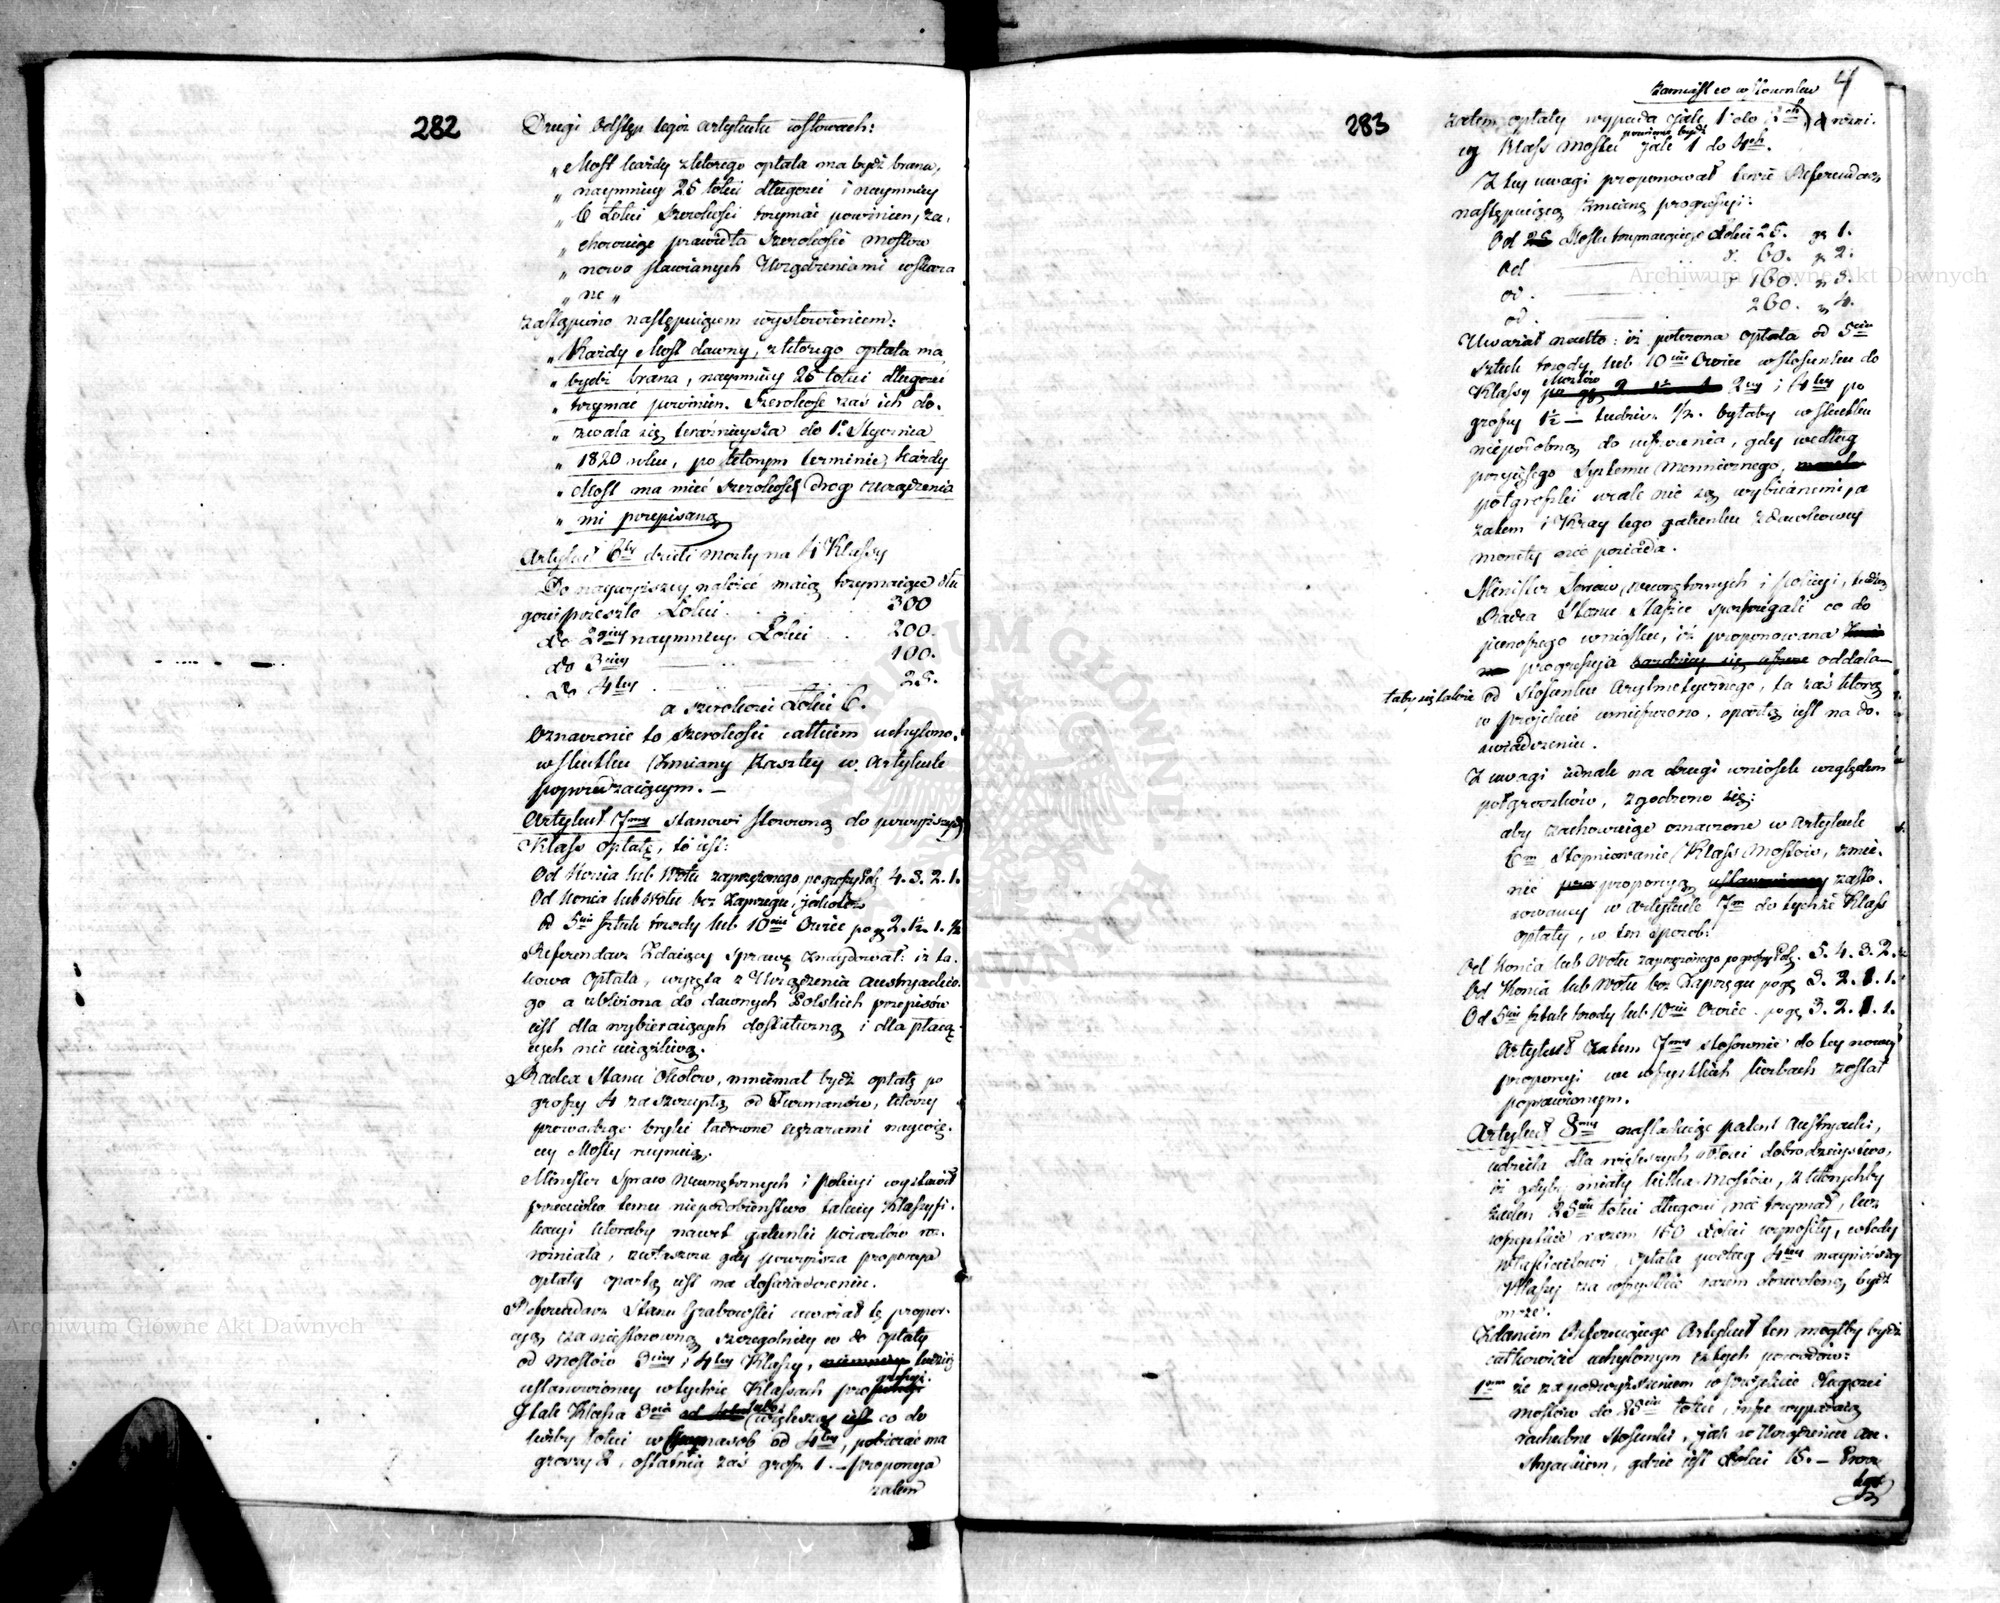 282
Drugi Odstęp tegoż Artykułu w słowach:
„ Most każdy z którego opłata ma bydź brana,
„ naymniey 25 łokci długości i naymniey
„ 6 Łokci szerokości trzymać powinien, za„
„ chowuiąc prawidła szerokości mostow
„ nowo stawianych Urządzeniami wskaza
„ ne „
zastąpiono następuiącem wysłowieniem:
„ Każdy Most dawny, z którego opłata ma
„ bydź brana, naymniey 25 łokci długości
„ trzymać powinien. Szerokość zaś ich do„
„ zwala się teraźnieysza do 1º Stycznia
„ 1820 roku, po którym terminie, każdy
„ Most ma mieć szerokość drog urządzenia
„ mi przepisaną
Artykuł 6ty dzieli mosty na 4 Klassy
Do naywyższey należeć maią trzymaiące dłu
gości przeszło Łokci . . . 300
do 2giey naymniey Łokci . . 200.
do 3ciey 100.
do 4tey 25.
a szerokości Łokci 6.
Oznaczenie to szerokości całkiem uchylono,
w skutku zmiany zaszłey w Artykule
poprzedzaiącym. —
Artykuł 7my stanowi stosowną do powyższych
Klass opłatę, to iest:
Od Konia lub Wołu zaprzężonego po groszy Pol 4. 3. 2. 1.
Od Konia lub Wołu bez Zaprzęgu, jakoteż
od 5ciu sztuk trzody lub 10ciu Owiec po gr 2. 1½. 1. ½
Referendarz zdaiący Sprawę znaydował: iż ta„
kowa Opłata, wyięta z Urządzenia Austryackie„
go a zbliżona do dawnych Polskich przepisów
iest dla wybieraiących dostateczną i dla płacą„
cych nie uciążliwą.
Radca Stanu Okołow, mniemał bydź opłatę po
groszy 4 za szczupłą od Furmanów, którzy
prowadząc bryki ładowne ciężarami naywię„
cey Mosty ruynuią.
Minister Spraw Wewnętrznych i Policyi wystawił
przeciwko temu niepodobieństwo takiey Klassyfi„
kacyi któraby nawet gatunki poiazdów roz„
rożniała, zwłaszcza gdy powyższa propozycya
opłaty opartą iest na doświadczeniu.
Referendarz Stanu Grabowski uważał tę propor„
cyą za niestosowną szczególniey co do opłaty
od mostów 3ciey i 4tey Klassy, tudzież
ustanowioney w tychże Klassach
I tak Klassa 3cia większą iest co do
liczby łokci w od 4tey, pobierać ma
groszy 2, ostatnia zaś grosz 1. — proporcya
zatem
283
4
zamiast co w stosunku
zatem opłaty wypada jak 1 do 2ch, a rożni„
cy Klass Mostu powinna bydź jak 1 do 4ch.
Z tey uwagi proponował tenże Referendarz
następuiącą zmianę progressyi:
Od Mostu trzymaiącego Łokci 25. gr 1.
od 60. gr 2.
od 160. gr 3.
od 260. gr 4.
Uważał nadto: iż położona opłata od 5ciu
sztuk trzody, lub 10ciu Owiec w stosunku do
Klassy Mostów 2ey i 4tey po
groszy 1½ — tudzież ½. byłaby w skutku
niepodobną do uiszczenia, gdy według
przyszłego Systemu Menniczego,
półgroszki wcale nie są wybiianemi, a
zatem i Kray tego gatunku zdawkowey
monety nie posiada.
Minister Spraw Wewnętrznych i Policyi, tudzież
Radca Stanu Staszic spostrzegali co do
pierwszego wniosku, iż proponowana
progressya oddala„
łaby się także od stosunku Arytmetycznego, ta zaś którą
w projekcie umieszczono, opartą iest na do„
świadczeniu.
Z uwagi iednak na drugi wniosek względem
półgroszków, zgodzono się:
aby zachowuiąc oznaczone w Artykule
6m stopniowanie Klass Mostów, zmie„
nić proporcyą zasto„
sowaney w Artykule 7m do tychże Klass
opłaty, w ten sposob:
Od Konia lub Wołu zaprzężonego po groszy Pol. 5. 4. 3. 2.
Od Konia lub Wołu bez Zaprzęgu po gr 3. 2. 1. 1.
Od 5ciu sztuk trzody lub 10ciu Owiec . po gr 3. 2. 1. 1.
Artykuł zatem 7my stosownie do tey nowey
proporcyi we wszystkich liczbach został
poprawionym.
Artykuł 8my naśladuiąc patent Austryacki,
udziela dla większych włości dobrodzieystwo,
iż gdyby miały kilka Mostów, z którychby
żaden 25ciu łokci długości nie trzymał, lecz
wszystkie razem 150 Łokci wynosiły, wtedy
właścicielowi, opłata podług 4tey nayniższey
Klassy za wszystkie razem dozwoloną bydź
może.
Zdaniem Referuiącego Artykuł ten mogłby bydź
całkowicie uchylonym z tych powodów:
1mo że za podwyższeniem w projekcie długości
mostów do 25ciu łokci, insze wypadaią
rachubne stosunki, jak w Urządzeniu Au„
stryackiem, gdzie iest Łokci 15. —
Archiwum Główne Akt Dawnych
Archiwum Główne Akt Dawnych
ARCHIWUM GŁÓWNE AKT DAWNYCH